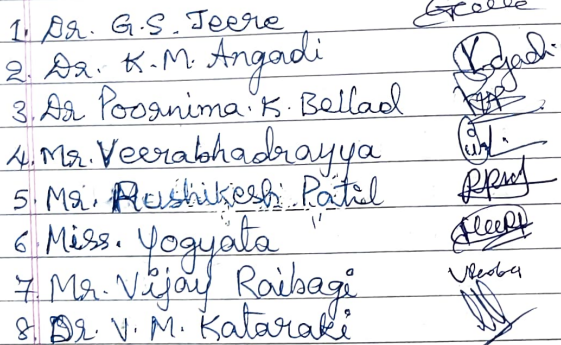 1. Dr. G.S. Jeere
2. Dr. K.M. Angadi
3. Dr Poornima. K. Bellad
4. Mr. Veerabhadrayya
5. Mr. Rushikesh Patil
6 Miss. Yogyata
7. Mr. Vijay Raibagi
8. Dr. V. M. Kataraki